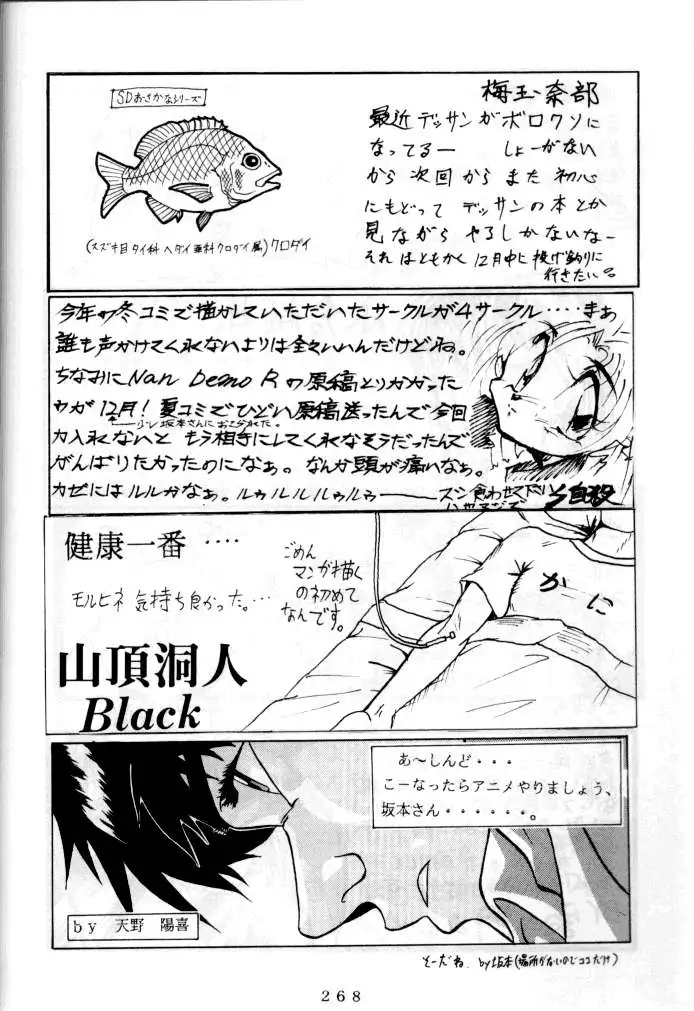 SDおさかなシリーズ
(スズキ目タイ科ヘダイ亜科クロダイ属)クロダイ
梅玉奈部
最近デッサンがボロクソに
なってるー しょーがない
から次回からまた初心
にもどってデッサンの本とか
見ながらやるしかないなー
それはともかく12月中に投げ釣りに
行きたい。
今年の冬コミで描かしていただいたサークルが4サークル‥‥まぁ
誰も声かけてくれないよりは全々いいんだけどね。
ちなみにNan Demo Rの原稿とりかかった
のが12月!夏コミでひどい原稿送ったんで今回
少し坂本さんにおこられた。
力入れないともう相手にしてくれなそうだったんで
がんばりたかったのになぁ。なんか頭が痛いなぁ。
カゼにはルルかなぁ。ルゥルルルゥルゥー
健康一番‥‥
モルヒネ気持ち良かった。‥‥
ごめん
マンガ描く
の初めて
なんです。
かに
山頂洞人
Black
あ～しんど・・・
こーなったらアニメやりましょう、
坂本さん・・・・・・。
by 天野 陽喜
そーだね。by坂本(場所がないのでココだけ)
268